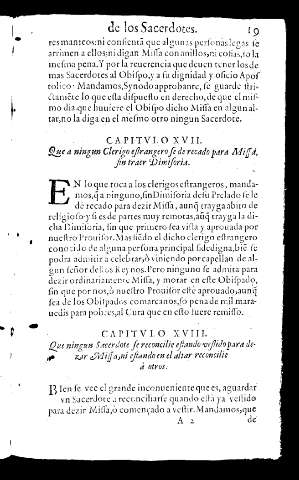 de los Sacerdotes. 19
res mancos: ni consientã que algunas personas legas se
arrimen a ellos: ni digan Missa con anillos, ni cosas, so la
mesma pena. Y por la reuerencia que deuen tener los de
mas Sacerdotes al Obispo, y a su dignidad y oficio Apos
tolico: Mandamos, Synodo approbante, se guarde stri-
ctamẽte lo que esta dispuesto en derecho, de que el mis-
mo dia que huuiere el Obispo dicho Missa en algun al-
tar, no la diga en el mesmo otro ningun Sacerdote.
CAPITVLO XVII.
Que a ningun Clerigo estrangero se de recado para Missa,
sin traer Dimisoria.
EN lo que toca a los clerigos estrangeros, manda-
mos, q̃ a ninguno, sin Dimisoria de su Prelado se le
de recado para dezir Missa, aunq̃ trayga abito de
religioso: y si es de partes muy remotas, aũq̃ trayga la di-
cha Dimisoria, sin que primero sea vista y aprouada por
nuestro Prouisor. Mas siẽdo el dicho clerigo estrangero
conocido de alguna persona principal fidedigna, biẽ se
podra admitir a celebrar, ò viniendo por capellan de al-
gun señor destos Reynos. Pero ninguno se admita para
dezir ordinariamẽte Missa, y morar en este Obispado,
sin que por nos, ò nuestro Prouisor estè aprouado, aunq̃
sea de los Obispados comarcanos, so pena de mil mara-
uedis para pobres, al Cura que en esto fuere remisso.
CAPITVLO XVIII.
Que ningun Sacerdote se reconcilie estando vestido para de-
zir Missa, ni estando en el altar reconcilie
à otros.
BIen se vee el grande inconueniente que es, aguardar
vn Sacerdote a reconciliarse quando està ya vestido
para dezir Missa, ò començado a vestir. Mandamos, que
A 2 de